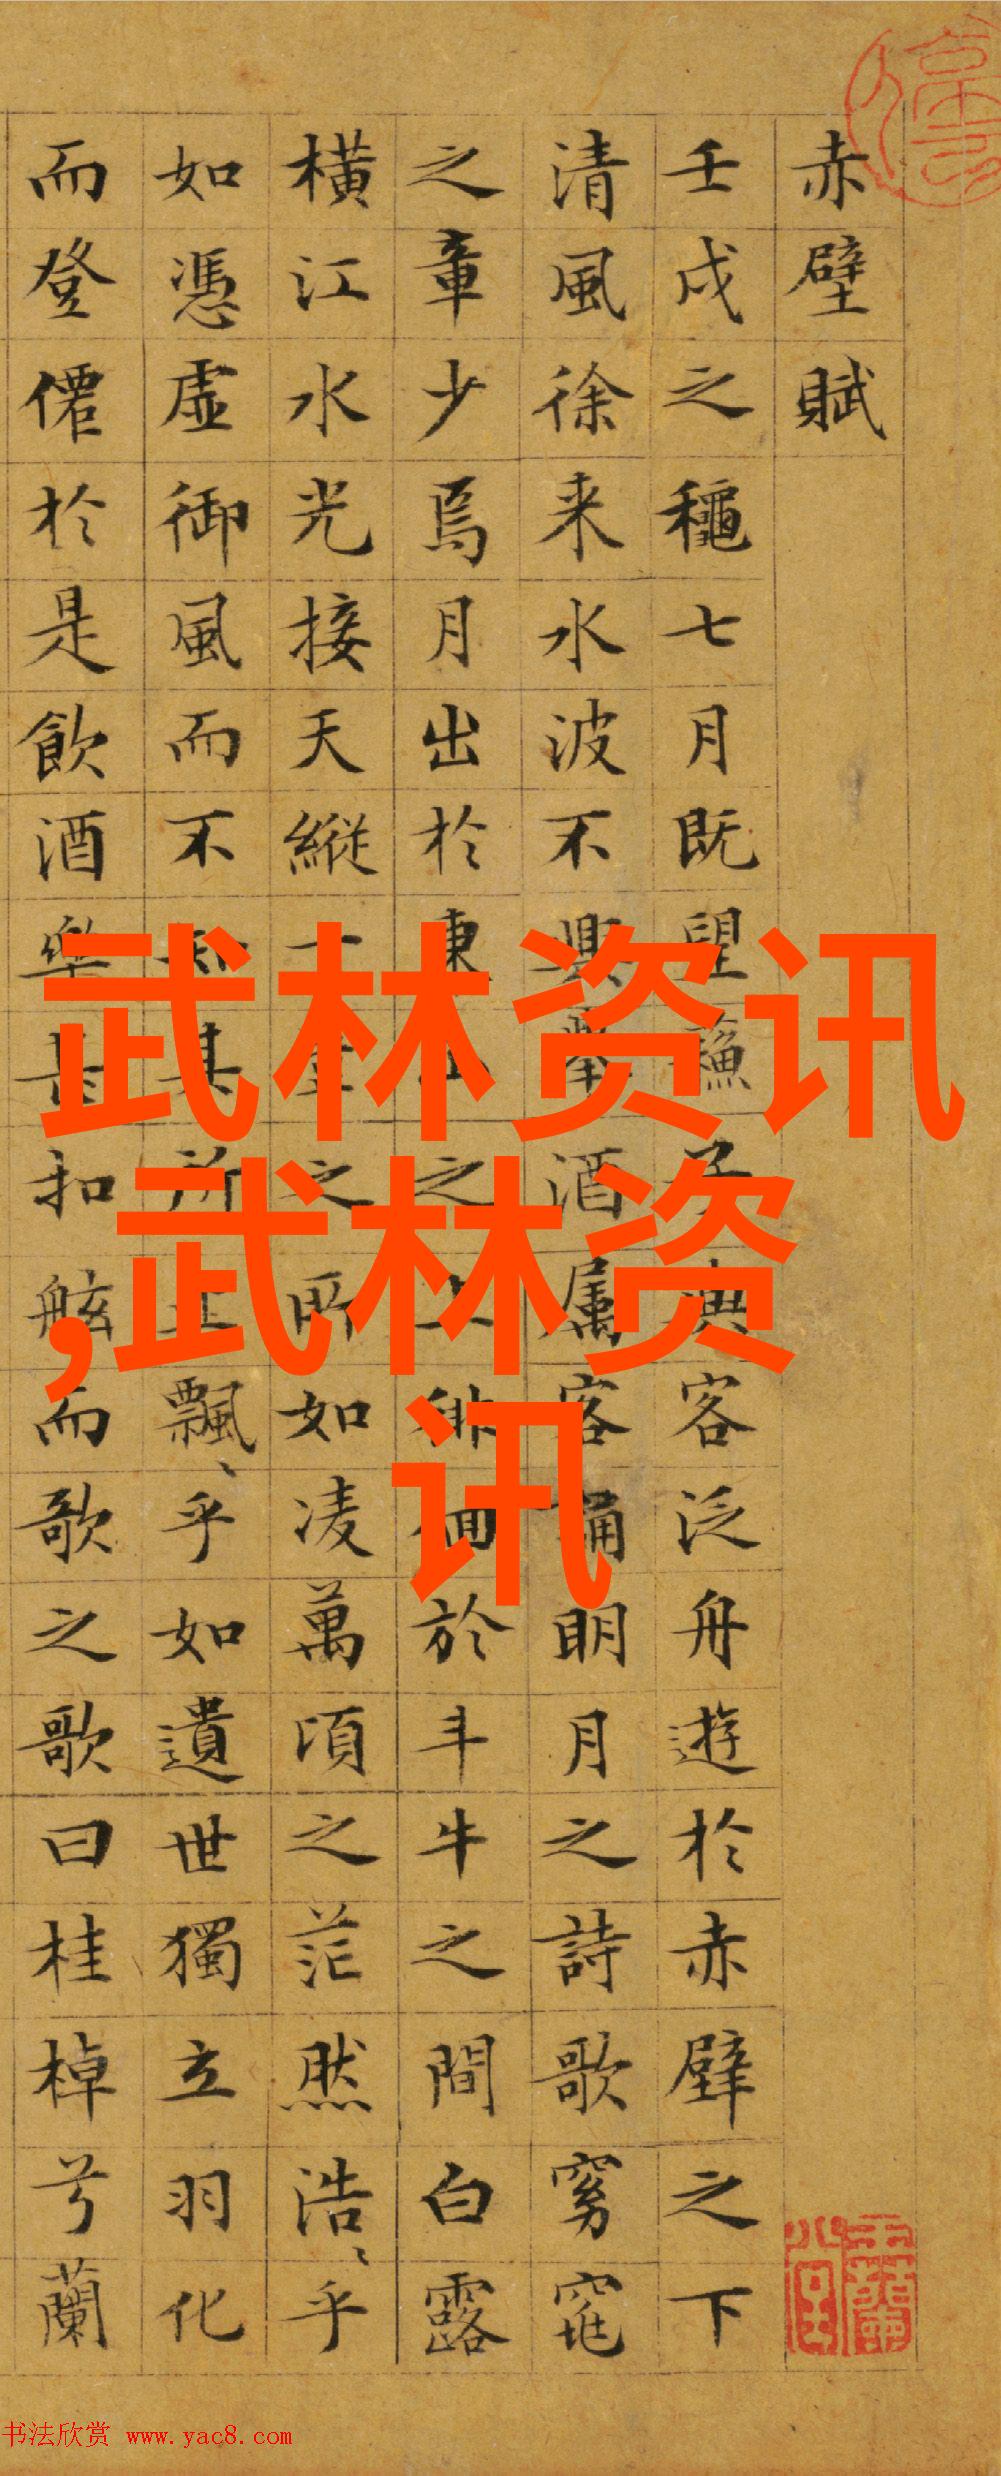 赤壁賦
壬戌之穐七月既望蘇子與客泛舟遊於赤壁之下
清風徐来水波不興舉酒属客誦明月之詩歌窈窕
之章少焉月出於東山之上徘徊於斗牛之間白露
橫江水光接天縱一葦之所如凌萬頃之茫然浩〻乎
如憑虛御風而不知其所止飄〻乎如遺世獨立羽化
而登僊於是飲酒樂甚扣舷而歌之歌曰桂棹兮蘭
武林资讯
,武林资
讯
书法欣赏 www.yac8.com